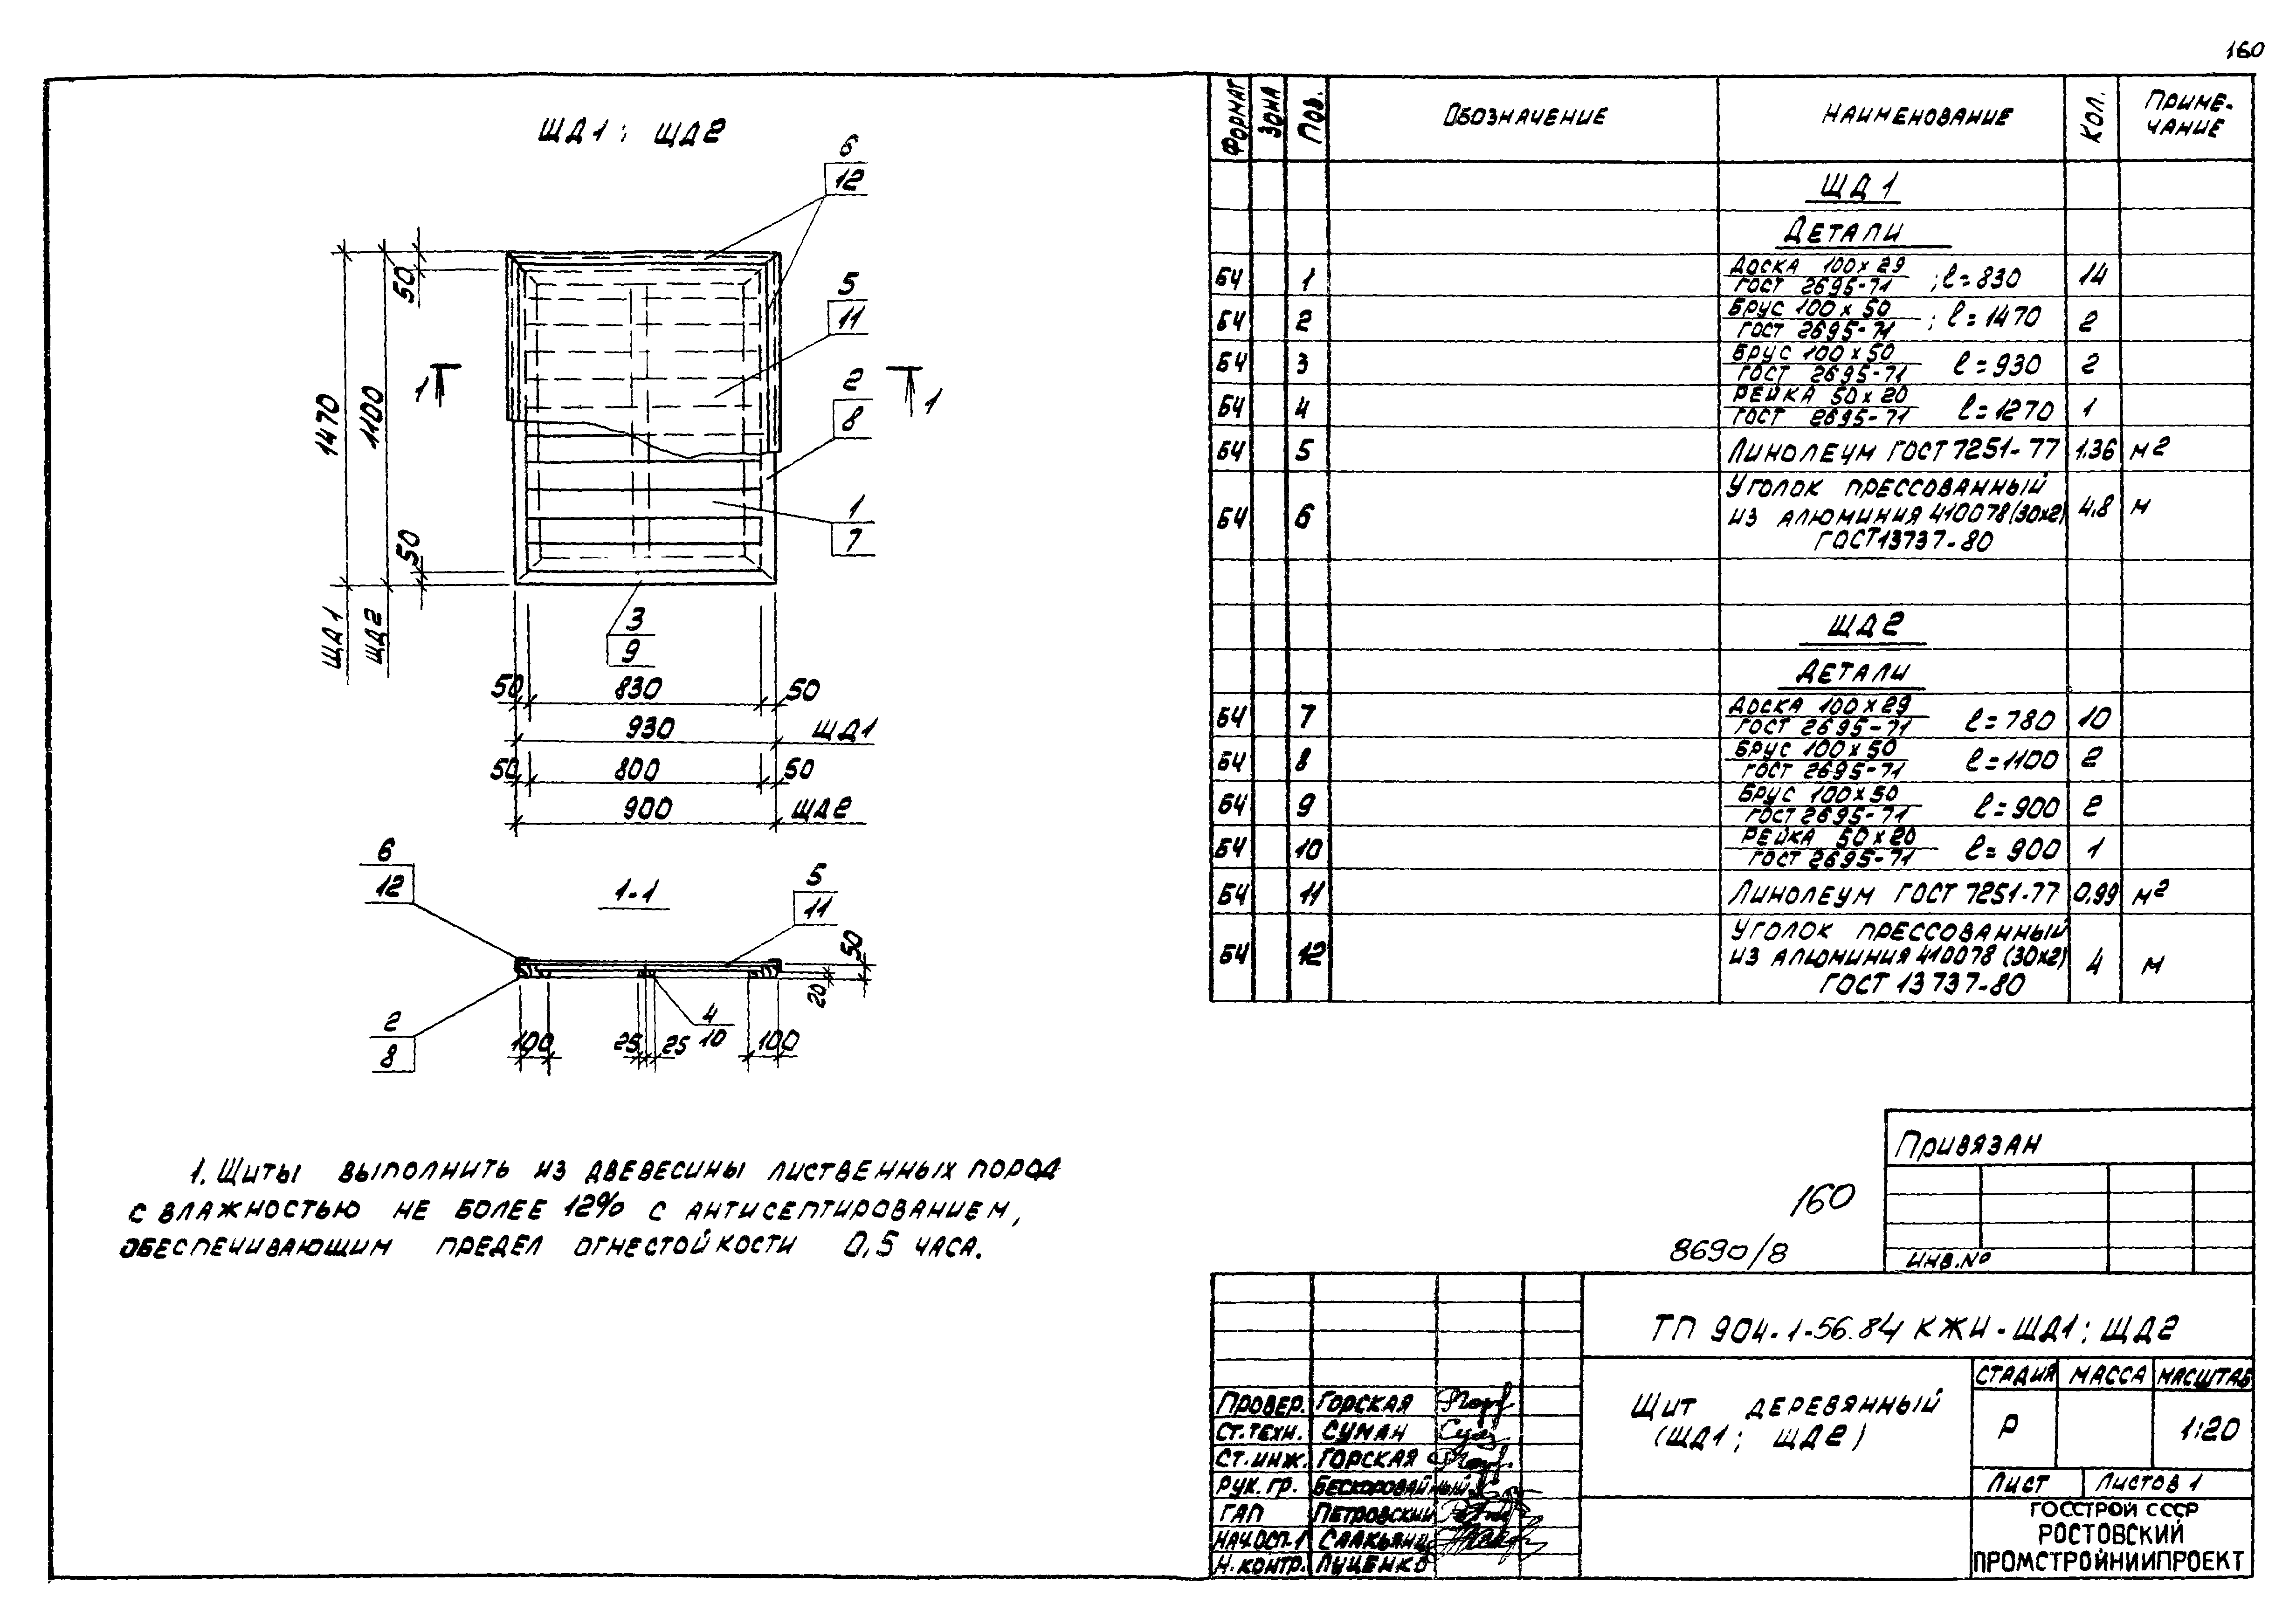 160
ЩД1; ЩД2
6
12
5
11
2
8
1
7
3
9
50
50
1470
1100
ЩД1
ЩД2
1
1
50 830 50
930 ЩД1
50 800 50
900 ЩД2
1-1
6
12
5
11
2
8
4
10
50
20
100 25 25 100
1. Щиты выполнить из двевесины лиственных пород
с влажностью не более 12% с антисептированием,
обеспечивающим предел огнестойкости 0,5 часа.
Формат Зона Поз. Обозначение Наименование Кол. Приме-
чание
ЩД1
Детали
БЧ 1 Доска 100х29 ; ℓ=830 14
ГОСТ 2695-71
БЧ 2 Брус 100х50 ; ℓ=1470 2
ГОСТ 2695-71
БЧ 3 Брус 100х50 ℓ=930 2
ГОСТ 2695-71
БЧ 4 Рейка 50х20 ℓ=1270 1
ГОСТ 2695-71
БЧ 5 Линолеум ГОСТ 7251-77 1.36 м2
БЧ 6 Уголок прессованный
из алюминия 410078 (30х2) 4,8 м
ГОСТ 13737-80
ЩД2
Детали
БЧ 7 Доска 100х29 ℓ=780 10
ГОСТ 2695-71
БЧ 8 Брус 100х50 ℓ=1100 2
ГОСТ 2695-71
БЧ 9 Брус 100х50 ℓ=900 2
ГОСТ 2695-71
БЧ 10 Рейка 50х20 ℓ=900 1
ГОСТ 2695-71
БЧ 11 Линолеум ГОСТ 7251-77 0,99 м2
БЧ 12 Уголок прессованный
из алюминия 410078 (30х2) 4 м
ГОСТ 13737-80
Привязан
Инв.№
160
8690/8
ТП 904-1-56.84 КЖИ-ЩД1; ЩД2
Щит деревянный
(ЩД1; ЩД2)
Стадия Масса Масштаб
Р 1:20
Лист Листов 1
ГОССТРОЙ СССР
РОСТОВСКИЙ
ПРОМСТРОЙНИИПРОЕКТ
Провер. Горская
Ст.техн. Суман
Ст.инж. Горская
Рук.гр. Бескоровайный
ГАП Петровский
Нач.ОСП-1 Саакьянц
Н.контр. Луценко